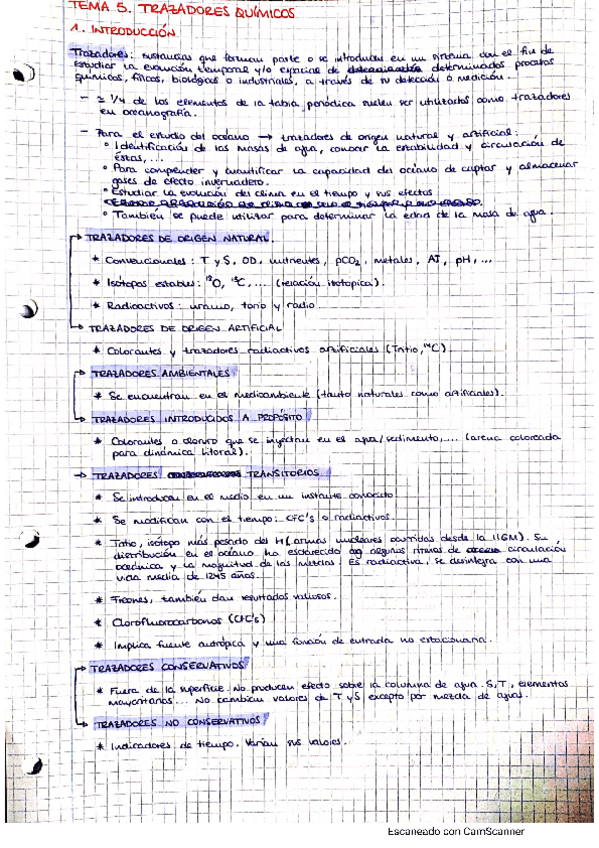 TEMA 5. TRAZADORES QUÍMICOS
1. INTRODUCCIÓN
Trazadores: sustancias que forman parte o se introducen en un sistema con el fin de
estudiar la evolución temporal y/o espacial de determinados procesos
químicos, físicos, biológicos o industriales, a través de su detección o medición.
- ≃ 1/4 de los elementos de la tabla periódica suelen ser utilizados como trazadores
en oceanografía.
- Para el estudio del océano → trazadores de origen natural y artificial:
° Identificación de las masas de agua, conocer la estabilidad y circulación de
éstas,...
° Para comprender y cuantificar la capacidad del océano de captar y almacenar
gases de efecto invernadero.
° Estudiar la evolución del clima en el tiempo y sus efectos
° También se puede utilizar para determinar la edad de la masa de agua.
TRAZADORES DE ORIGEN NATURAL.
* Convencionales: T y S, OD, nutrientes, pCO2, metales, AT, pH,...
* Isótopos estables: ¹⁸O, ¹³C,... (relación isotópica).
* Radioactivos: uranio, torio y radio.
→ TRAZADORES DE ORIGEN ARTIFICIAL
* Colorantes y trazadores radiactivos artificiales (Tritio, ¹⁴C).
→ TRAZADORES AMBIENTALES
* Se encuentran en el medioambiente (tanto naturales como artificiales).
→ TRAZADORES INTRODUCIDOS A PROPÓSITO
* Colorantes o cloruro que se inyectan en el agua/sedimento,... (arena coloreada
para dinámica litoral).
→ TRAZADORES TRANSITORIOS
* Se introducen en el medio en un instante conocido
* Se modifican con el tiempo: CFC's o radiactivos.
* Tritio, isótopo más pesado del H (armas nucleares ocurridas desde la IIGM). Su
distribución en el océano ha esclarecido algunos ritmos de circulación
oceánica y la magnitud de las mezclas. Es radiactiva, se desintegra con una
vida media de 12.45 años.
* Freones, también dan resultados valiosos.
* Clorofluorocarbonos (CFC's)
* Implica fuente antrópica y una función de entrada no estacionaria.
→ TRAZADORES CONSERVATIVOS
* Fuera de la superficie. No producen efecto sobre la columna de agua. S, T, elementos
mayoritarios... No cambian valores de T y S excepto por mezcla de aguas.
→ TRAZADORES NO CONSERVATIVOS
* Indicadores de tiempo. Varían sus valores.
Escaneado con CamScanner